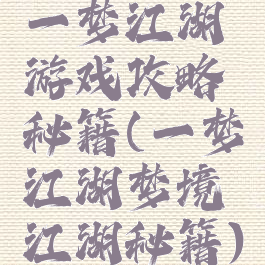 一梦江湖
游戏攻略
秘籍(一梦
江湖梦境
江湖秘籍)